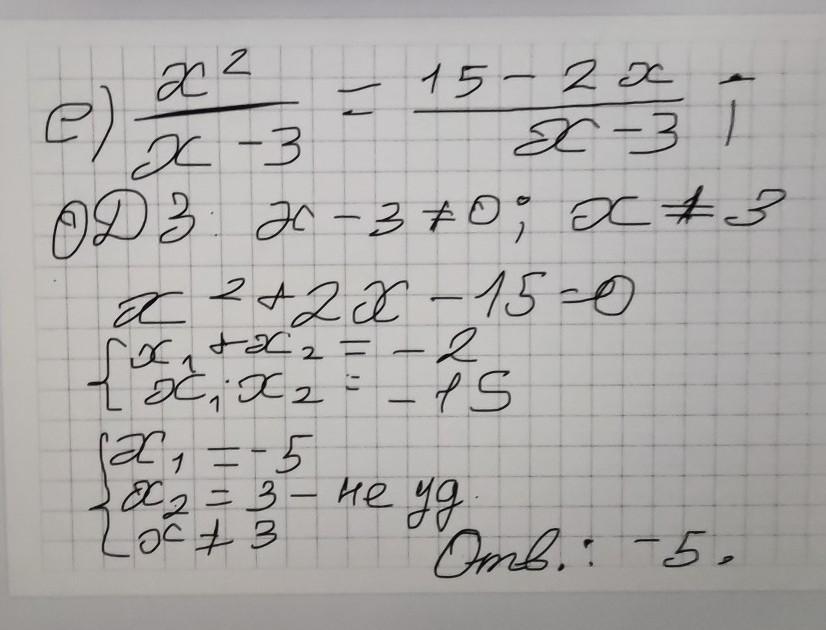 е) x²/(x - 3) = (15 - 2x)/(x - 3);
ОДЗ: x - 3 ≠ 0; x ≠ 3
x² + 2x - 15 = 0
{ x₁ + x₂ = - 2
x₁ · x₂ = - 15
{ x₁ = - 5
x₂ = 3 - не уд.
x ≠ 3
Отв.: -5.